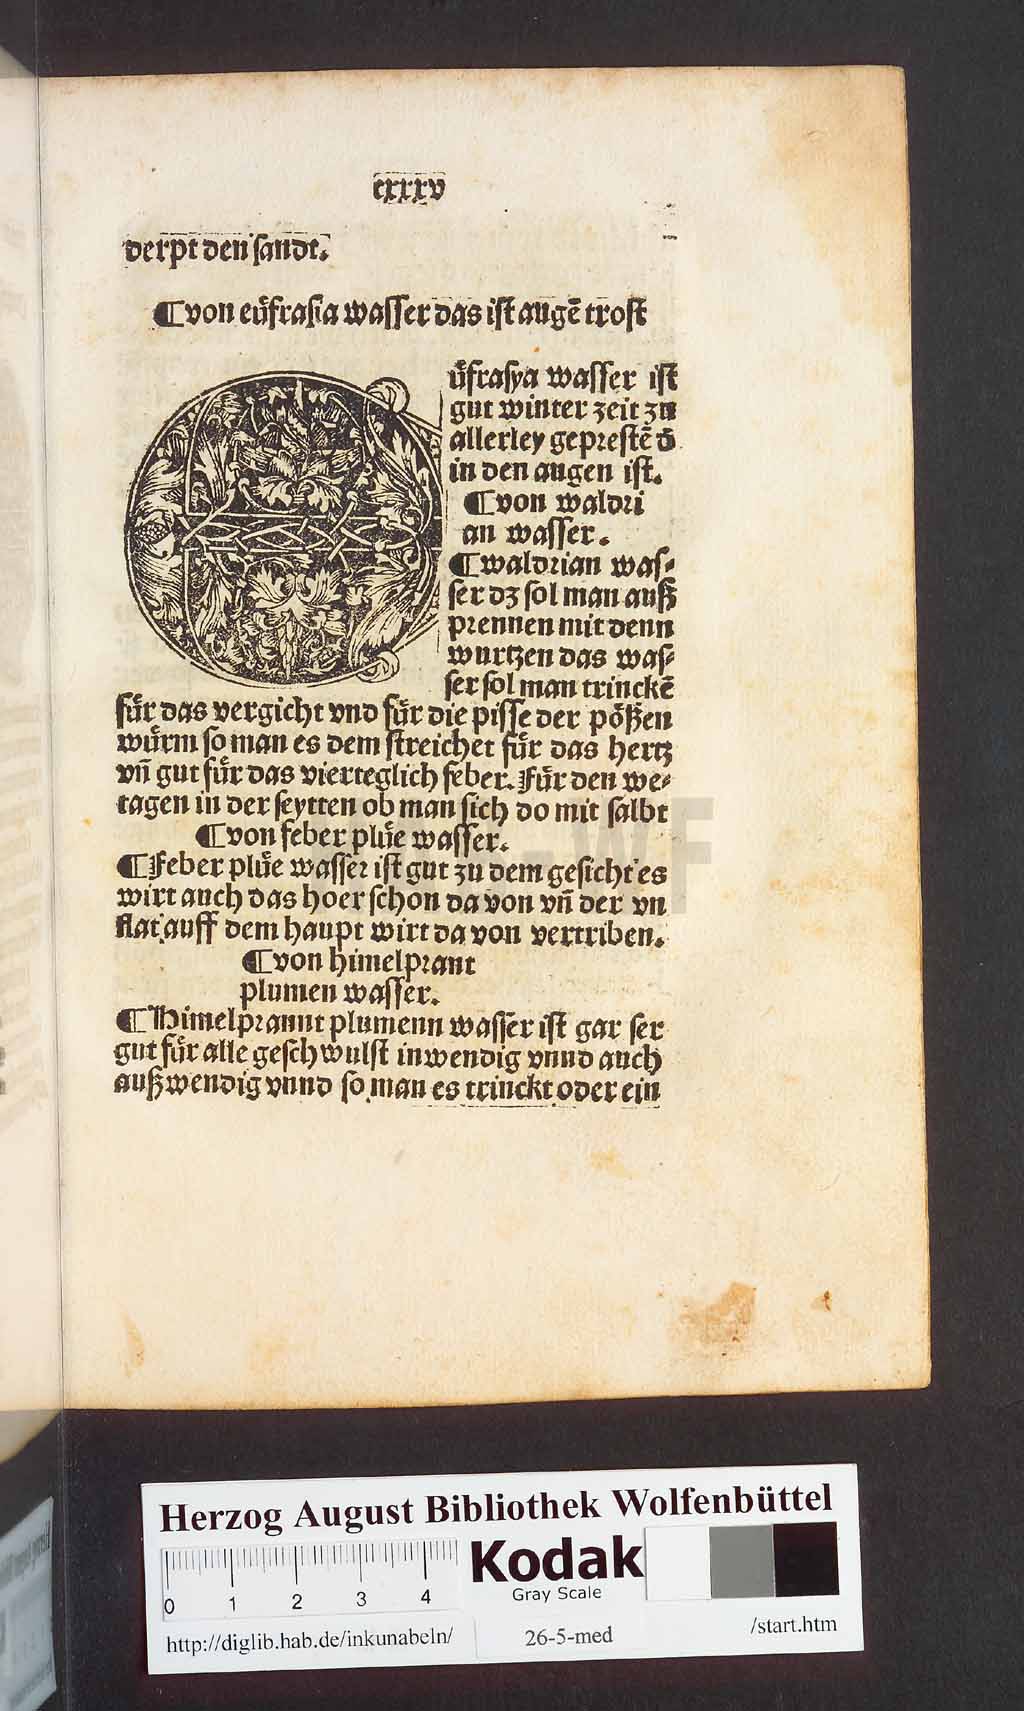 cxxxv
derpt den sandt.
¶von eüfrasia wasser das ist augē trost
E
üfrasya wasser ist
gut winter zeit zu
allerley geprestē d̄
in den augen ist.
¶von waldri
an wasser.
¶waldrian was⸗
ser dz sol man auß
prennen mit denn
wurtzen das was⸗
ser sol man trinckē
fuͤr das vergicht vnd fuͤr die pisse der poͤßen
wuͤrm so man es dem streichet fuͤr das hertz
vñ gut fuͤr das vierteglich feber. Fuͤr den we⸗
tagen in der seytten ob man sich do mit salbt
¶von feber pluͤe wasser.
¶Feber pluͤe wasser ist gut zu dem gesicht es
wirt auch das hoer schon da von vñ der vn
flat auff dem haupt wirt da von vertriben.
¶von himelprant
plumen wasser.
¶Himelprannt plumenn wasser ist gar ser
gut fuͤr alle geschwulst inwendig vnnd auch
außwendig vnnd so man es trinckt oder ein
HAB-WF
Herzog August Bibliothek Wolfenbüttel
0 1 2 3 4
Kodak
Gray Scale
http://diglib.hab.de/inkunabeln/ 26-5-med /start.htm